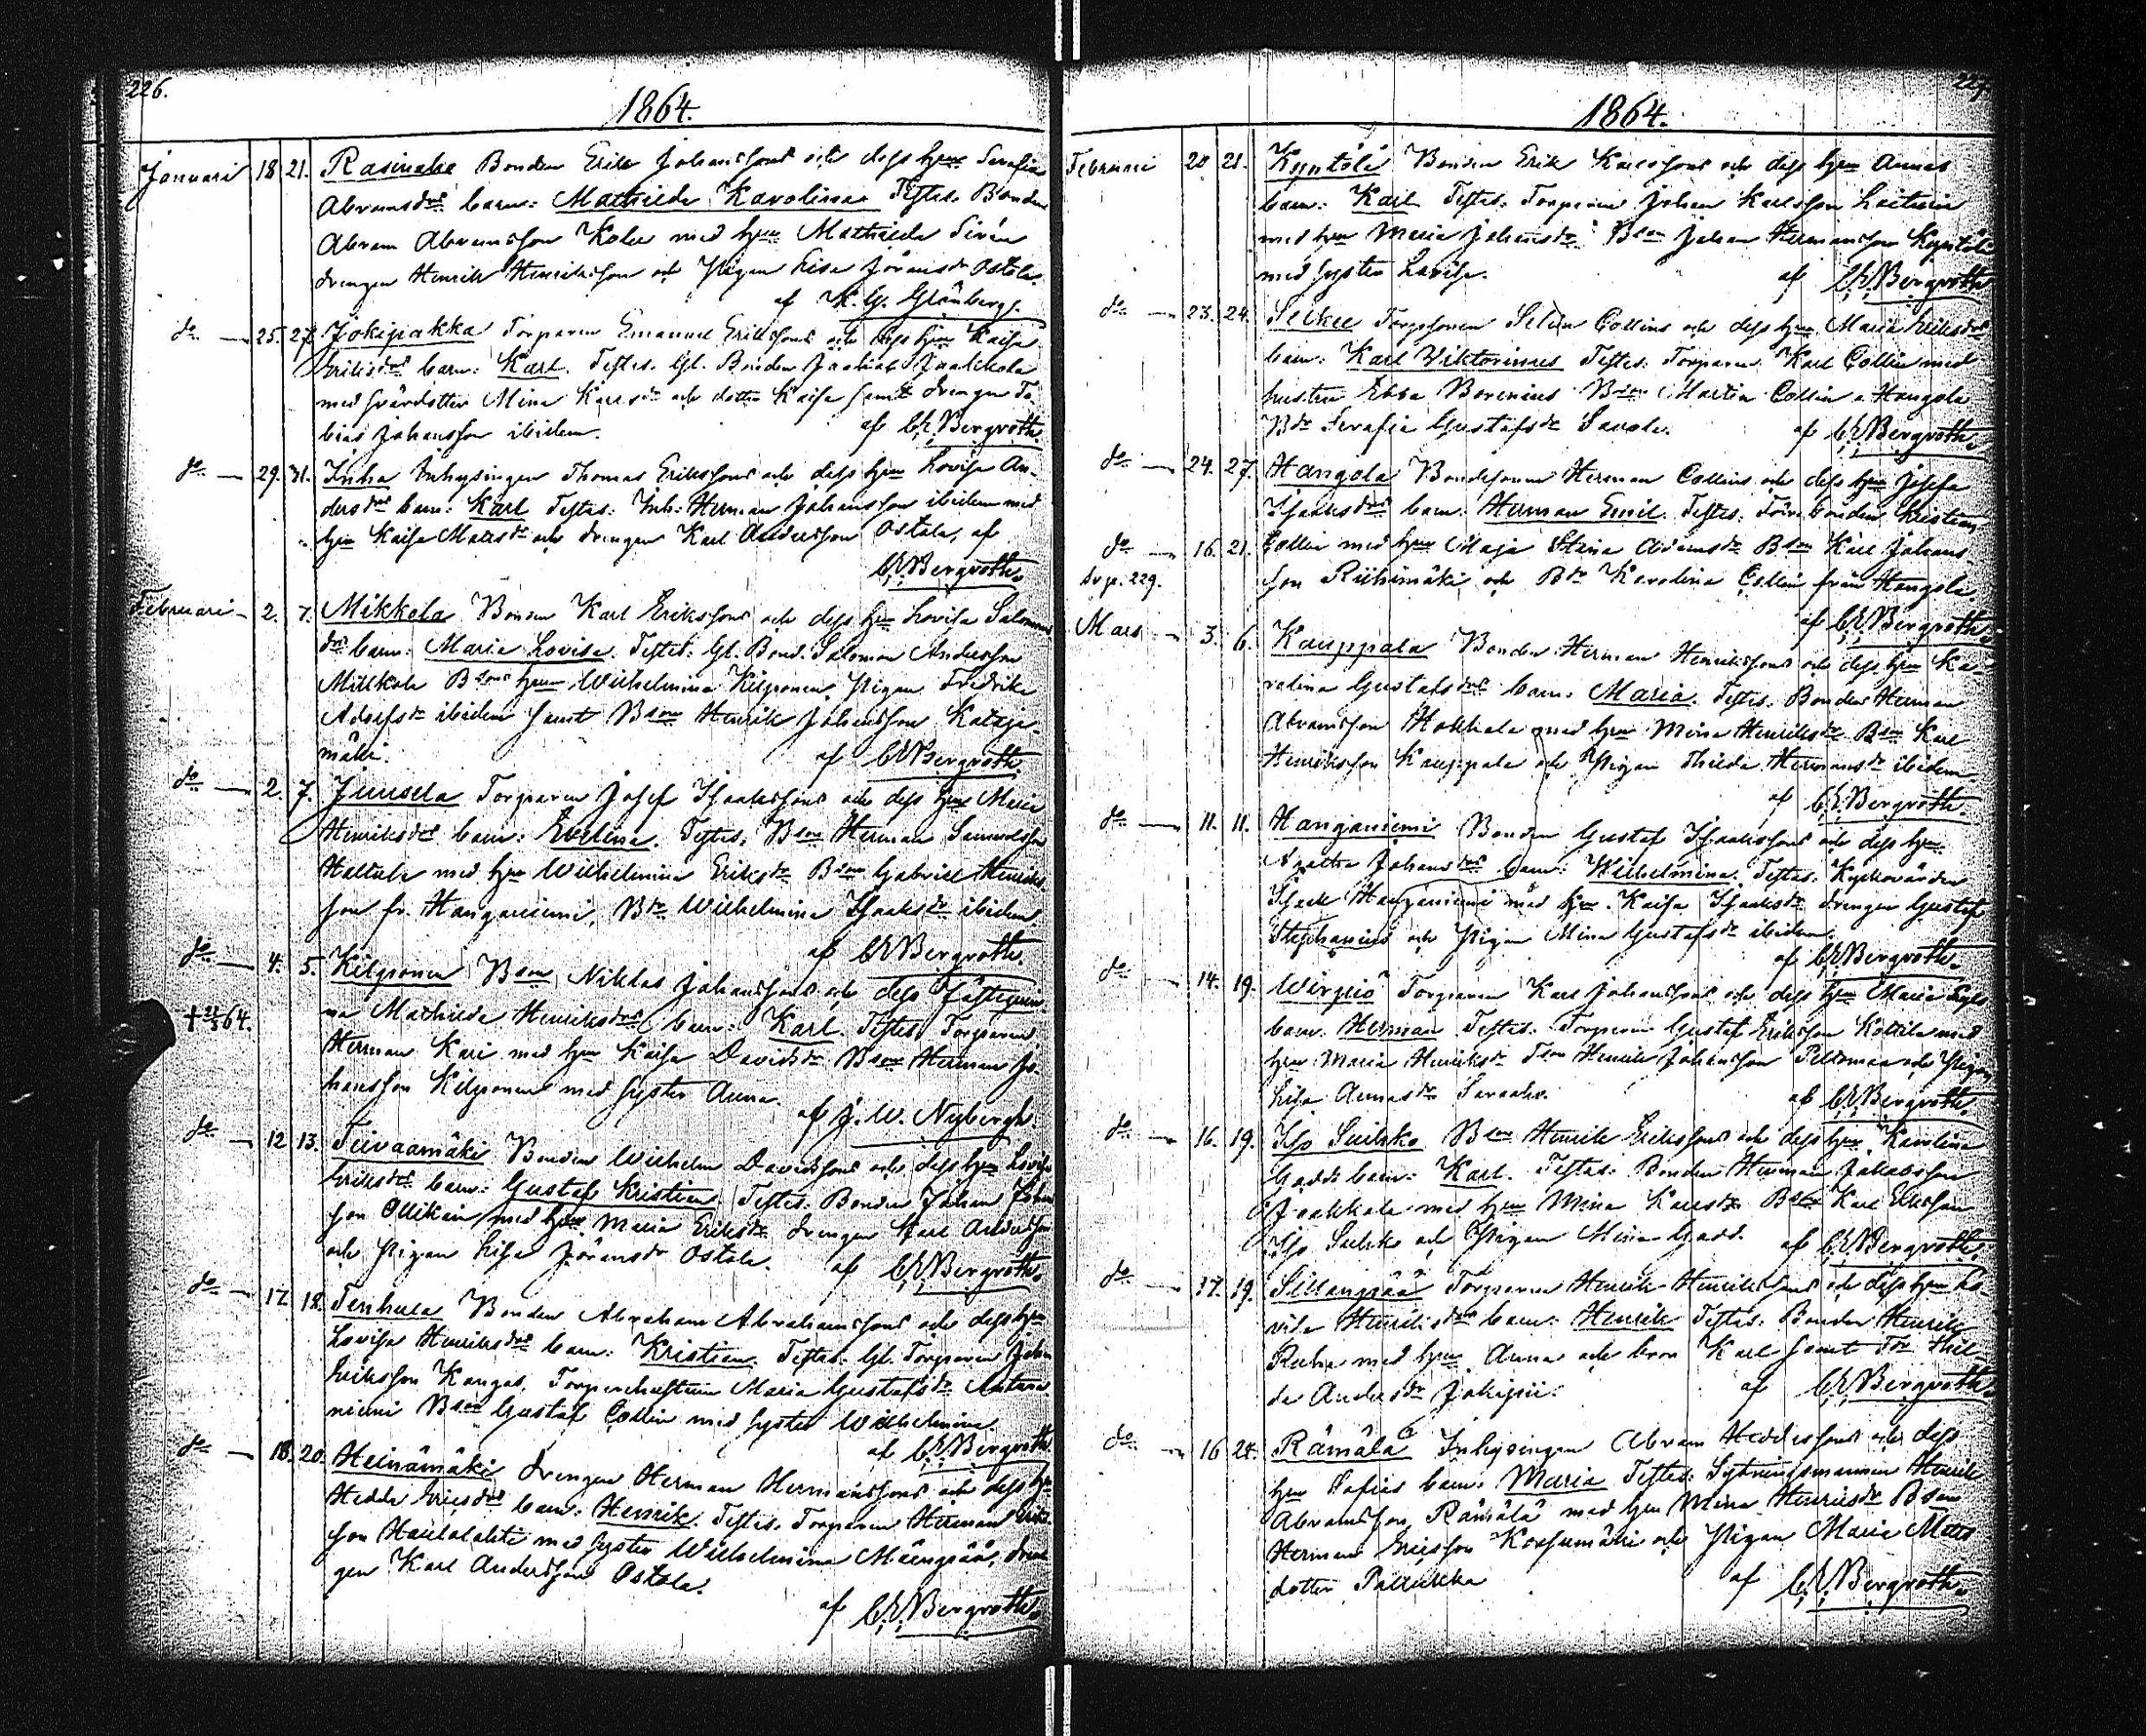 226.
1864.
Januari 18 21. Rasinahe Bonden Erik Johanssons och dess hru Serafia
Abramsdrs barn: Mathilda Karolina Testes. Bonden
Abram Abramsson Koho med hru Mathilda Sirén
drengen Henrik Henriksson och Pigan Lisa Jöransdr Ostola.
af K. G. Glönberg.
do 25. 27. Jokipakka Torparen Emanuel Erikssons och dess hru Kaisa
Eriksdrs barn: Karl. Testes. Gl. Bonden Jaakob Jaakkola
med svärdotter Mina Karlsdr och dotter Kaisa samt drengen To-
bias Johansson ibidem. af C.E. Bergroth.
do 29. 31. Inha Inhysingen Thomas Erikssons och dess hru Lovisa An-
dersdrs barn: Karl Testes: Inh: Herman Johansson ibidem med
hru Kaisa Matsdr och drengen Karl Andersson Ostola, af
C.E. Bergroth.
Februari 2. 7. Mikkola Bonden Karl Erikssons och dess hru Lovisa Salomons
drs barn: Maria Lovisa. Testes: Gl. Bond. Salomon Andersson
Mikkola Bsons hru Wilhelmina Kilponen, Pigan Fredrika
Adolfsdr ibidem samt Bson Henrik Johansson Kataja-
mäki. af C.E. Bergroth.
do 2. 7. Junsela Torparen Josef Isaakssons och dess hru Maria
Henriksdrs barn: Evelina. Testes: Bson Herman Samuelsson
Hallula med hru Wilhelmina Eriksdr Bson Gabriel Henriks
son fr. Hanganiemi, Bdr Wilhelmina Isaaksdr ibidem,
af C.E. Bergroth.
do 4. 5. Kilponen Bson Niklas Johanssons och dess Fästeqvin-
† 64. na Mathilda Henriksdrs barn: Karl. Testes: Torparen
Herman Kari med hru Kaisa Davidsdr Bson Herman Jo-
hansson Kilponen med syster Anna.
af J. W. Nybergh.
do 12. 13. Teivaamäki Bonden Wilhelm Davidssons och dess hru Lovisa
Eriksdrs barn: Gustaf Kristian Testes: Bonden Johan Johans
son Ollikain med hru Maria Eriksdr drengen Karl Andersson
och Pigan Lisa Jöransdr Ostola. af C.E. Bergroth.
do 17. 18. Tenhula Bonden Abraham Abrahamssons och dess hru
Lovisa Henriksdrs barn: Kristian. Testes: Gl. Torparen Johan
Eriksson Kangas, Torparehustrun Maria Gustafsdr
niemi Bson Gustaf Collin med syster Wilhelmina.
af C.E. Bergroth
do 18. 20. Heinämäki drengen Herman Hermanssons och dess hru
Hedda Ericsdrs barn: Henrik. Testes. Torparen Herman Eriks-
son Hautalahti med syster Wilhelmina Mäenpää, dren
gen Karl Andersson Ostola.
af C.E. Bergroth.
227.
1864.
Februari 20 21. Kyntölä Bonden Erik Karlssons och dess hru Annas
barn: Karl Testes: Torparen Johan Karlsson Laiturin
med hru Maria Johansdr Bson Johan Hermansson Kyntölä
med syster Lovisa. af C.E. Bergroth.
do 23. 24. Selkee Torpsonen Selim Collins och dess hru Maria Eriksdrs
barn: Karl Viktorinus Testes: Torparen Karl Collin med
hustru Ebba Borenius Bson Martin Collin a Hangola
Bdr Serafia Gustafsdr Savola. af C.E. Bergroth.
do 24. 27. Hangola Bondesonen Herman Collins och dess hru Josefa
Isaaksdrs barn: Herman Emil. Testes: Före. bonden Kristian
do 16. 21. Collin med hru Maja Stina Adamsdr Bson Karl Johans
Se p. 229. son Riihimäki och Bdr Karolina Collin från Hangola.
af C.E. Bergroth.
Mars 3. 6. Kauppala Bonden Herman Henrikssons och dess hru Ka-
rolina Gustafsdrs barn: Maria. Testes. Bonden Herman
Abramsson Hokkala med hru Mina Henriksdr Bson Karl
Henriksson Kauppala och Pigan Thilda Hermansdr ibidem.
af C.E. Bergroth.
do 11. 11. Hanganiemi Bonden Gustaf Isaakssons och dess hru
Agatha Johansdrs barn: Wilhelmina. Testes. Kyrkovärden
Isak Hanganiemi med hru Kaisa Isaaksdr drengen Gustaf
Stephanius och Pigan Mina Gustafsdr ibidem.
af C.E. Bergroth.
do 14. 19. Wirpiö Torparen Karl Johanssons och dess hru Maria
barn: Herman Testes: Torparen Gustaf Eriksson Kottila med
hru Maria Henriksdr Tson Henrik Johansson Peltomaa och Pigan
Lisa Annasdr Savaaho. af C.E. Bergroth.
do 16. 19. Iso Suihko Bson Henrik Erikssons och dess hru Karolina
Gadds barn: Karl. Testes: Bonden Herman Jakobsson
Jaakkola med hru Mina Karlsdr Bson Karl Eriksson
Iso Suihko och Pigan Mina Gadd. af C.E. Bergroth.
do 17. 19. Sillanpää Torparen Henrik Henrikssons och dess hru Lo-
visa Henriksdrs barn: Henrik Testes: Bonden Henrik
Ruha med hru Anna och bror Karl samt Tdr Thil-
da Andersdr Jokipii. af C.E. Bergroth.
do 16 28. Rämälä Inhysingen Abram Heddassons och dess
hru Sofias barn: Maria Testes: Sytningsmannen Henrik
Abramsson, Rämälä med hru Mina Henriksdr Bson
Herman Ericsson Korsumäki och Pigan Maria Mats
dotter Pakukka af C.E. Bergroth.